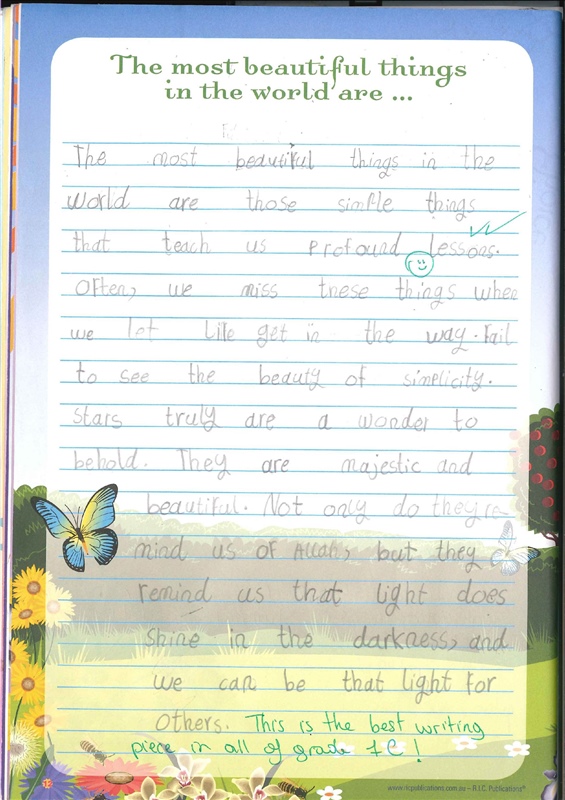 The most beautiful things
in the world are ...
The most beautiful things in the
world are those simple things
that teach us profound lessons.
Often, we miss these things when
we let life get in the way. Fail
to see the beauty of simplicity.
Stars truly are a wonder to
behold. They are majestic and
beautiful. Not only do they re
mind us of Allah, but they
remind us that light does
shine in the darkness, and
we can be that light for
others. This is the best writing
piece in all of grade 1C!
www.ricpublications.com.au – R.I.C. Publications®